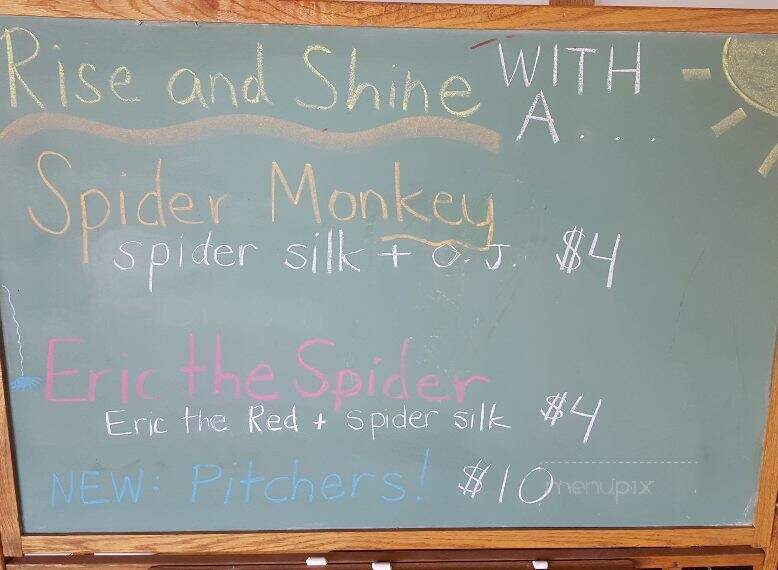 Rise and Shine WITH
A....
Spider Monkey
spider silk + O.J. $4
Eric the Spider
Eric the Red + spider silk $4
NEW: Pitchers! $10
menupix